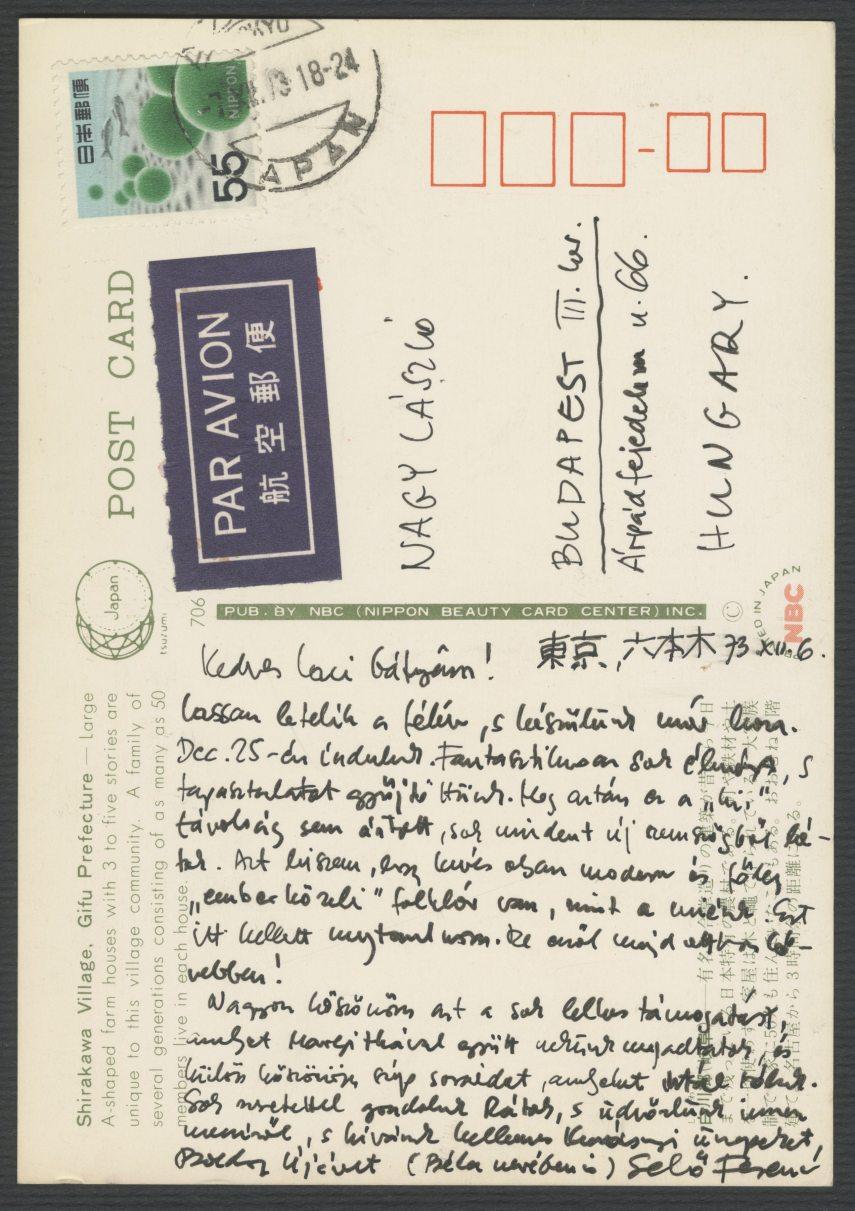 TOKYO
XII.73 18-24
JAPAN
日本郵便
NIPPON
55
POST CARD
PAR AVION
航空郵便
NAGY LÁSZLÓ
BUDAPEST III. ker.
Árpád fejedelem u. 66.
HUNGARY.
Japan
tsuzumi
706
PUB. BY NBC (NIPPON BEAUTY CARD CENTER) INC.
©
PRINTED IN JAPAN
NBC
Shirakawa Village, Gifu Prefecture — Large
A-shaped farm houses with 3 to five stories are
unique to this village community. A family of
several generations consisting of as many as 50
members live in each house.
Kedves Laci bátyám!
東京, 六本木 73 XII. 6.
Lassan letelik a félév, s készülünk már haza.
Dec. 25-én indulunk. Fantasztikusan sok élményt, s
tapasztalatot gyűjtöttünk. Meg aztán ez a „kis”
távolság sem ártott, sok mindent új szemszögből lá-
tok. Azt hiszem, hogy kevés olyan modern és főleg
„emberközeli” folklór van, mint a miénk. Ezt
itt kellett megtanulnom. De erről majd otthon bő-
vebben!
Nagyon köszönöm azt a sok lelkes támogatást,
amelyet Margitkával együtt nekünk megadtatok, és
külön köszönöm szép soraidat, amelyeket rólunk.
Sok szeretettel gondolunk Rátok, s üdvözlünk innen
messziről, s kívánunk kellemes Karácsonyi ünnepeket,
Boldog Újévet (Béla nevében is) Sebő Ferenc